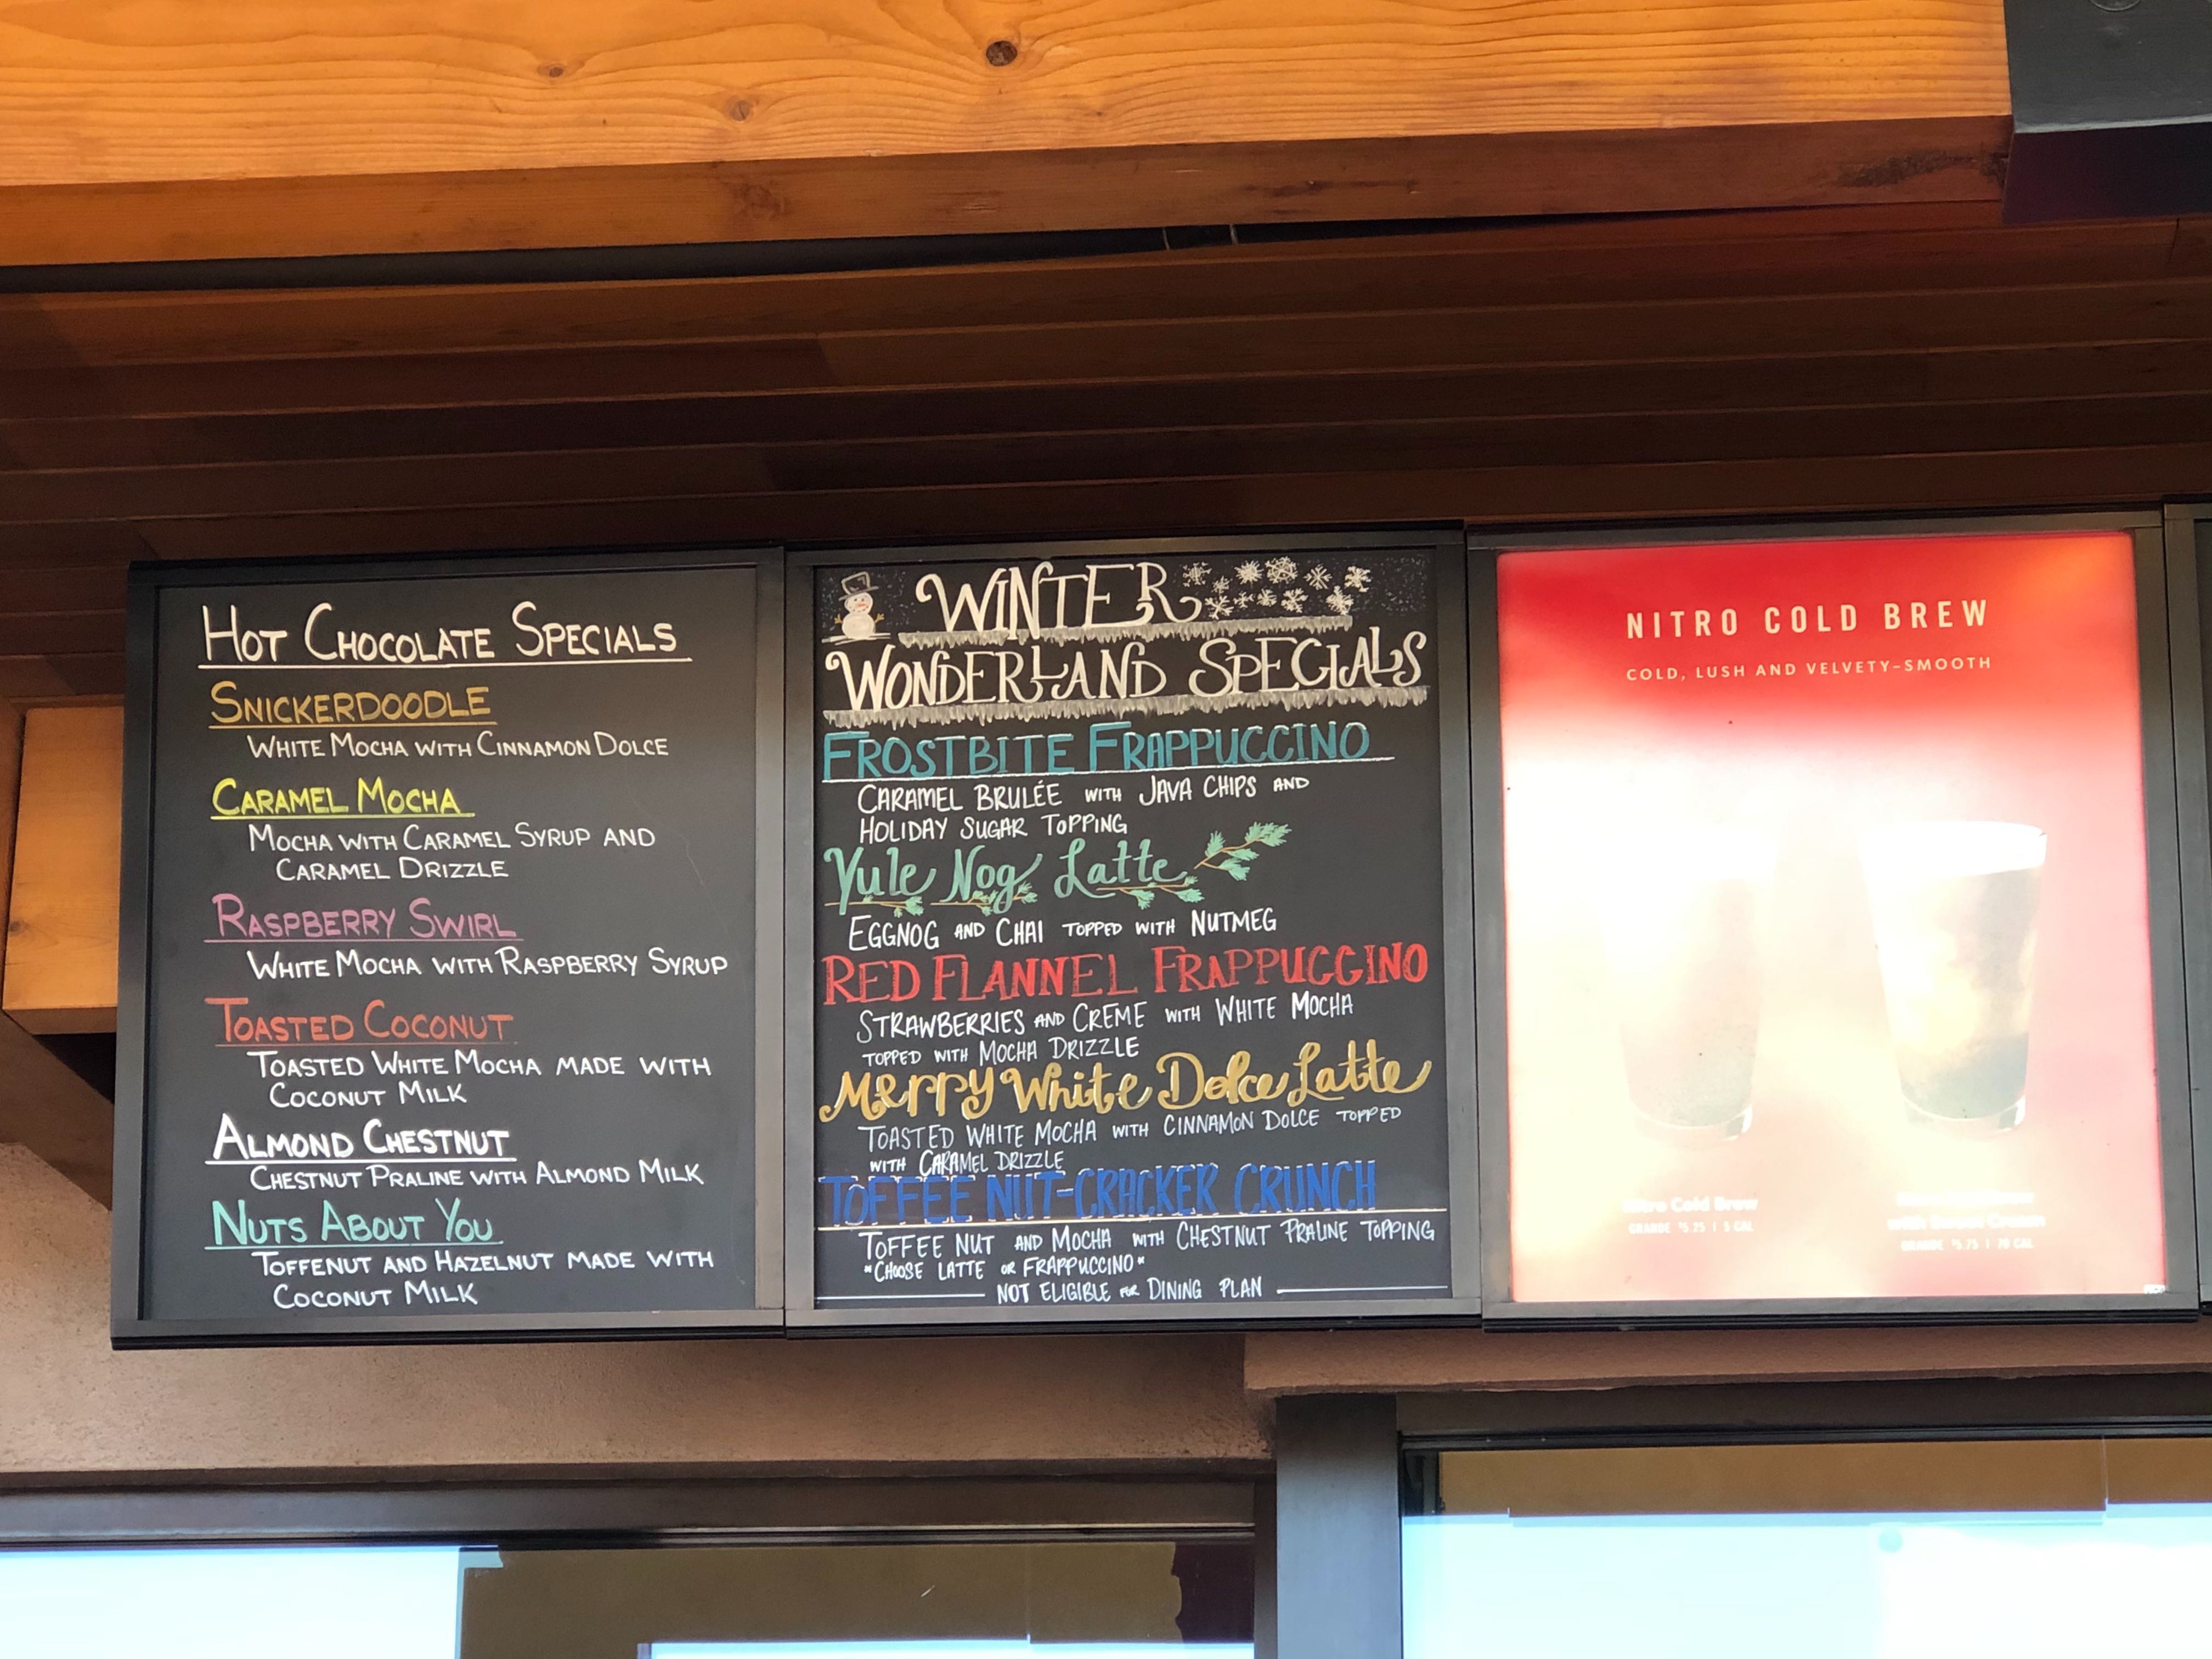 Hot Chocolate Specials
Snickerdoodle
White Mocha with Cinnamon Dolce
Caramel Mocha
Mocha with Caramel Syrup and
Caramel Drizzle
Raspberry Swirl
White Mocha with Raspberry Syrup
Toasted Coconut
Toasted White Mocha made with
Coconut Milk
Almond Chestnut
Chestnut Praline with Almond Milk
Nuts About You
Toffenut and Hazelnut made with
Coconut Milk
WINTER
WONDERLAND SPECIALS
FROSTBITE FRAPPUCCINO
CARAMEL BRULÉE WITH JAVA CHIPS AND
HOLIDAY SUGAR TOPPING
Yule Nog Latte
EGGNOG AND CHAI TOPPED WITH NUTMEG
RED FLANNEL FRAPPUCCINO
STRAWBERRIES AND CREME WITH WHITE MOCHA
TOPPED WITH MOCHA DRIZZLE
Merry White Dolce Latte
TOASTED WHITE MOCHA WITH CINNAMON DOLCE TOPPED
WITH CARAMEL DRIZZLE
TOFFEE NUT-CRACKER CRUNCH
TOFFEE NUT AND MOCHA WITH CHESTNUT PRALINE TOPPING
"CHOOSE LATTE OR FRAPPUCCINO"
NOT ELIGIBLE FOR DINING PLAN
NITRO COLD BREW
COLD, LUSH AND VELVETY-SMOOTH
Nitro Cold Brew
GRANDE $5.25 | 5 CAL
with Sweet Cream
GRANDE $5.75 | 70 CAL